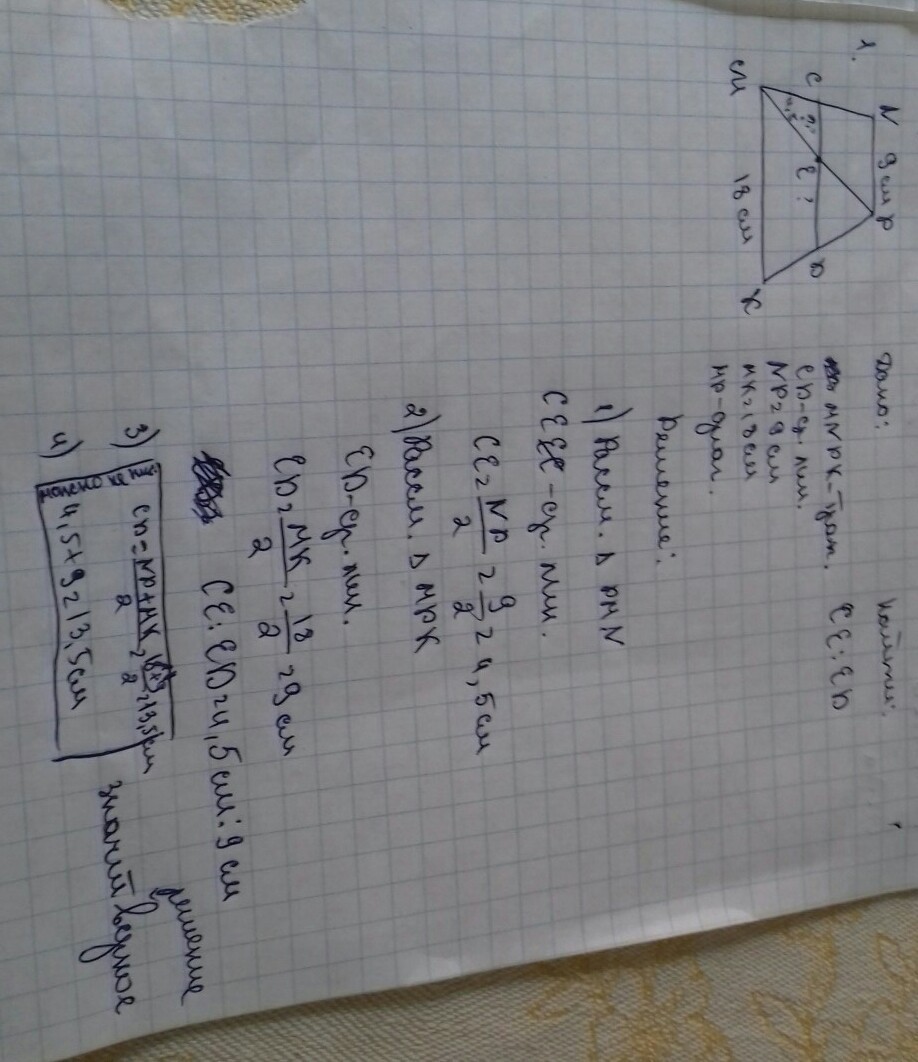 1.
N 9 см P
C ? E ? D
M 18 см K
Дано:
MNPK-трап.
CD-ср. лин.
NP=9 см
MK=18 см
MP-диаг.
Найти:
CE:ED
Решение:
1) Рассм. Δ PMN
CE-ср. лин.
CE=NP/2=9/2=4,5см
2) Рассм. Δ MPK
ED-ср. лин.
ED=MK/2=18/2=9см
CE:ED=4,5см:9см
3) CD=NP+MK/2=18+9/2=13,5см
4) 4,5+9=13,5см
можно не
значит верное
решение